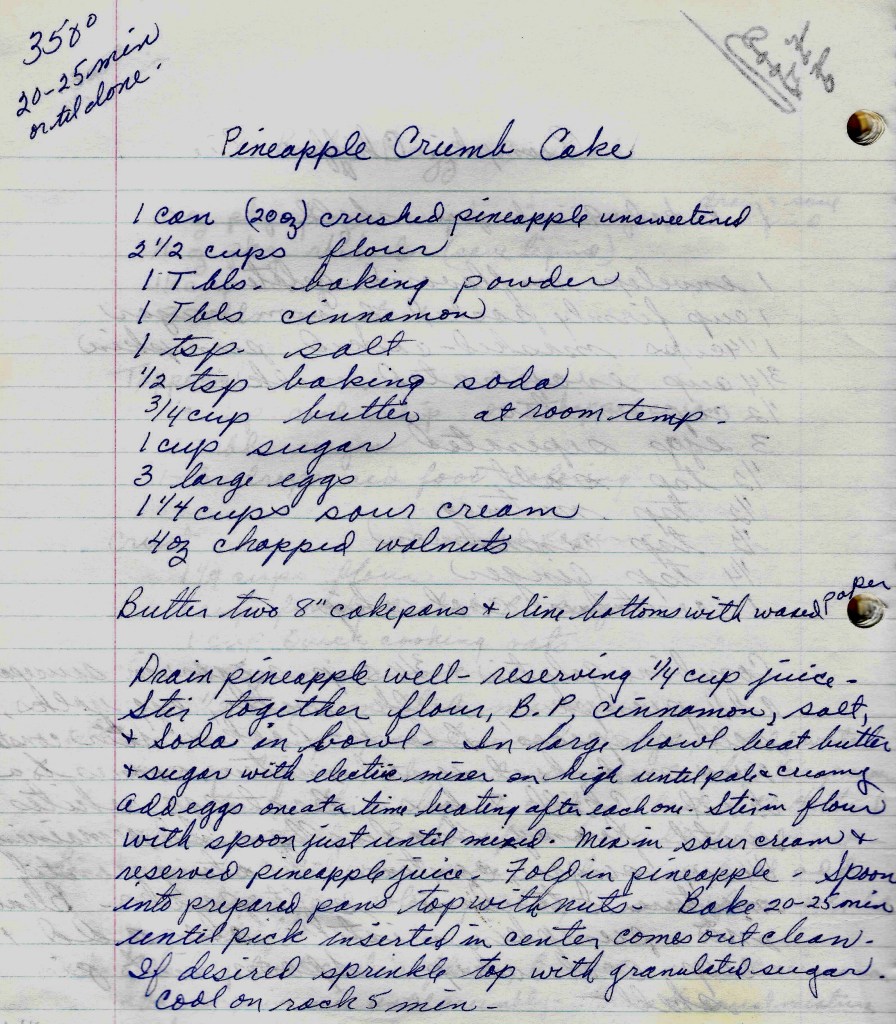 350°
20-25 min
or til done.
Pineapple Crumb Cake
1 can (20 oz) crushed pineapple unsweetened
2 1/2 cups flour
1 Tbls. baking powder
1 Tbls cinnamon
1 tsp. salt
1/2 tsp baking soda
3/4 cup butter at room temp.
1 cup sugar
3 large eggs
1 1/4 cups sour cream
4 oz chopped walnuts
Butter two 8" cakepans + line bottoms with waxed paper
Drain pineapple well - reserving 1/4 cup juice -
Stir together flour, B.P, cinnamon, salt,
+ Soda in bowl - In large bowl beat butter
+ sugar with electric mixer on high until pale + creamy
add eggs one at a time beating after each one. Stir in flour
with spoon just until mixed. Mix in sour cream +
reserved pineapple juice. Fold in pineapple - Spoon
into prepared pans top with nuts - Bake 20-25 min
until pick inserted in center comes out clean.
If desired sprinkle top with granulated sugar.
Cool on rack 5 min -